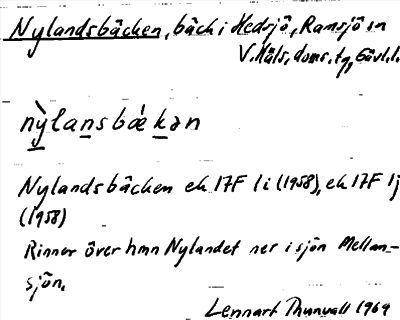 Nylandsbäcken, bäck i Hedsjö, Ramsjö sn
V. Häls. doms. tg, Gävl. l.
nỳlansbǽkən
Nylandsbäcken ek 17F 1i (1958), ek 17F 1j
(1958)
Rinner över hmn Nylandet ner i sjön Mellan-
sjön.
Lennart Thunvall 1969